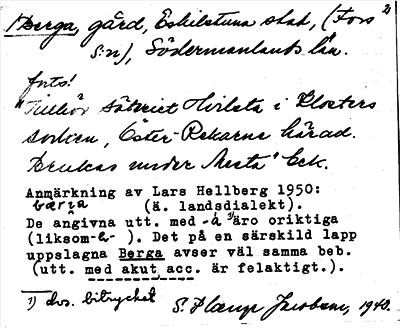 1) Berga, gård, Eskilstuna stad, (Fors 2)
s:n), Södermanlands län.
forts!
"Tillhör säteriet Hvilsta i Klosters
socken, Öster-Rekarne härad.
Brukas under Mesta" Eek.
Anmärkning av Lars Hellberg 1950:
bærja (ä. landsdialekt).
De angivna utt. med -á 1) äro oriktiga
(liksom - ). Det på en särskild lapp
uppslagna Berga avser väl samma beb.
(utt. med akut acc. är felaktigt.).
1) dvs. bitrycket S. Jacobson, 1940.